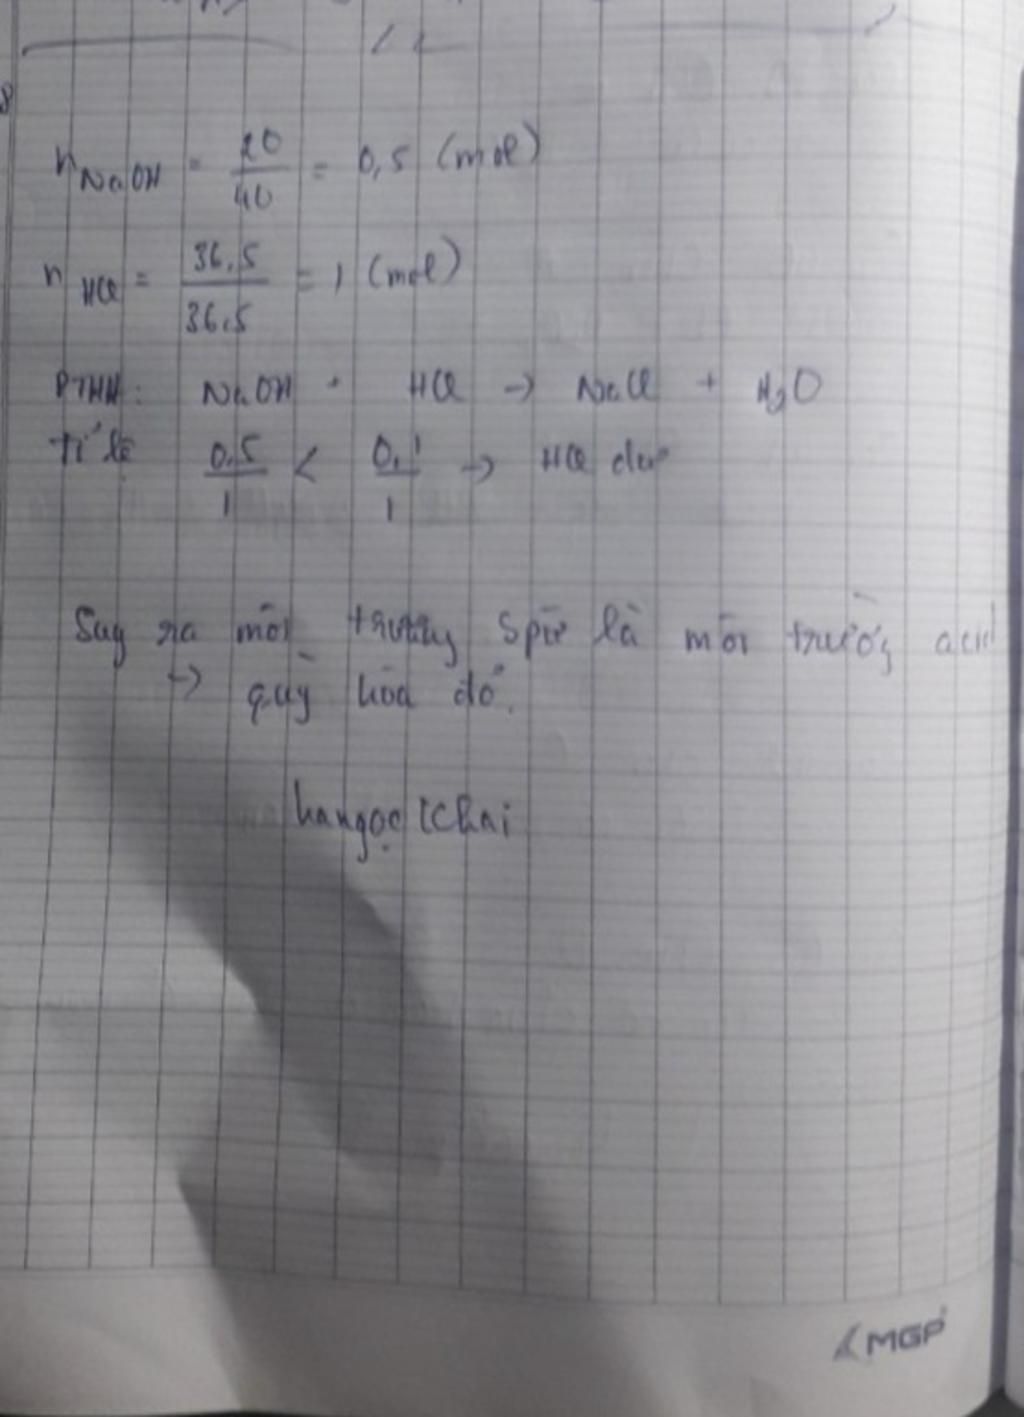 n NaOH = 20/40 = 0,5 (mol)
n HCl = 36,5/36,5 = 1 (mol)
PTHH: NaOH + HCl → NaCl + H₂O
Tỉ lệ 0,5/1 < 0,1/1 → HCl dư
Suy ra môi trường Spư là môi trường acid
→ quỳ hóa đỏ.
hangọc Khai
MGP